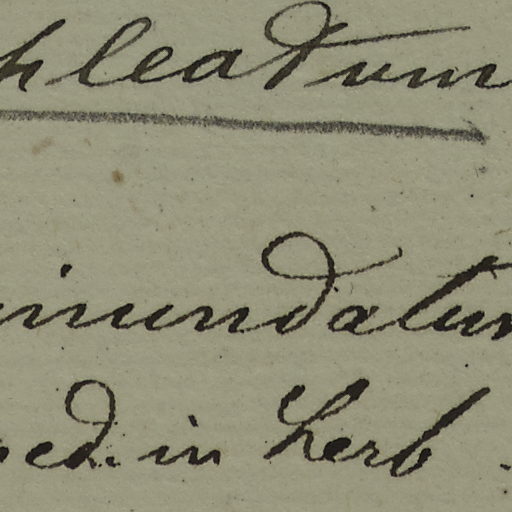 hleatum
inundatum
ed. in herb.